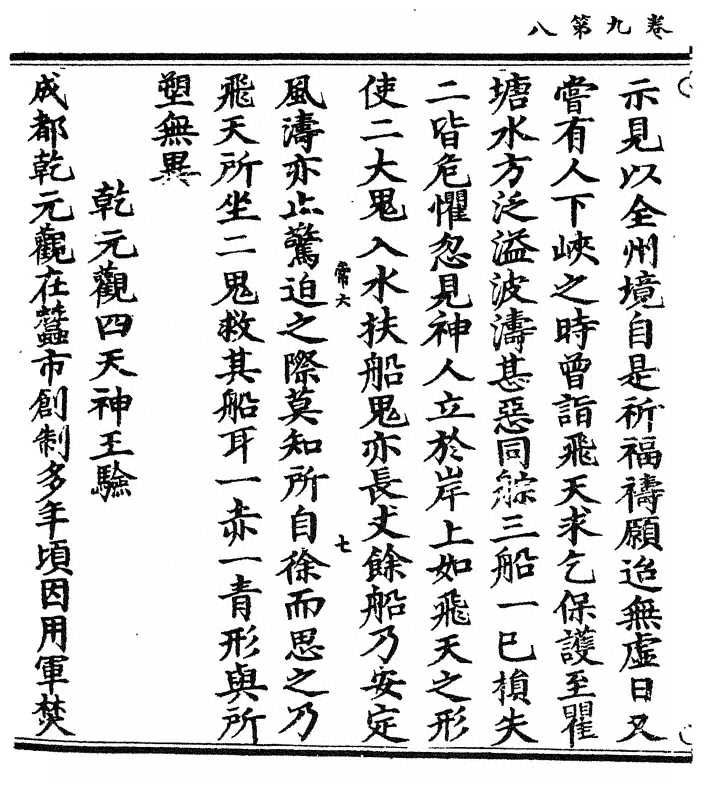 卷九第八
示見以全州境自是祈福禱願迨無虛日又
嘗有人下峽之時曾詣飛天求乞保護至瞿
塘水方泛溢波濤甚惡同䑸三船一已損失
二皆危懼忽見神人立於岸上如飛天之形
使二大鬼入水扶船鬼亦長丈餘船乃安定
常六 七
風濤亦止驚迫之際莫知所自徐而思之乃
飛天所坐二鬼救其船耳一赤一青形與所
塑無異
乾元觀四天神王驗
成都乾元觀在蠶市創制多年頃因用軍焚